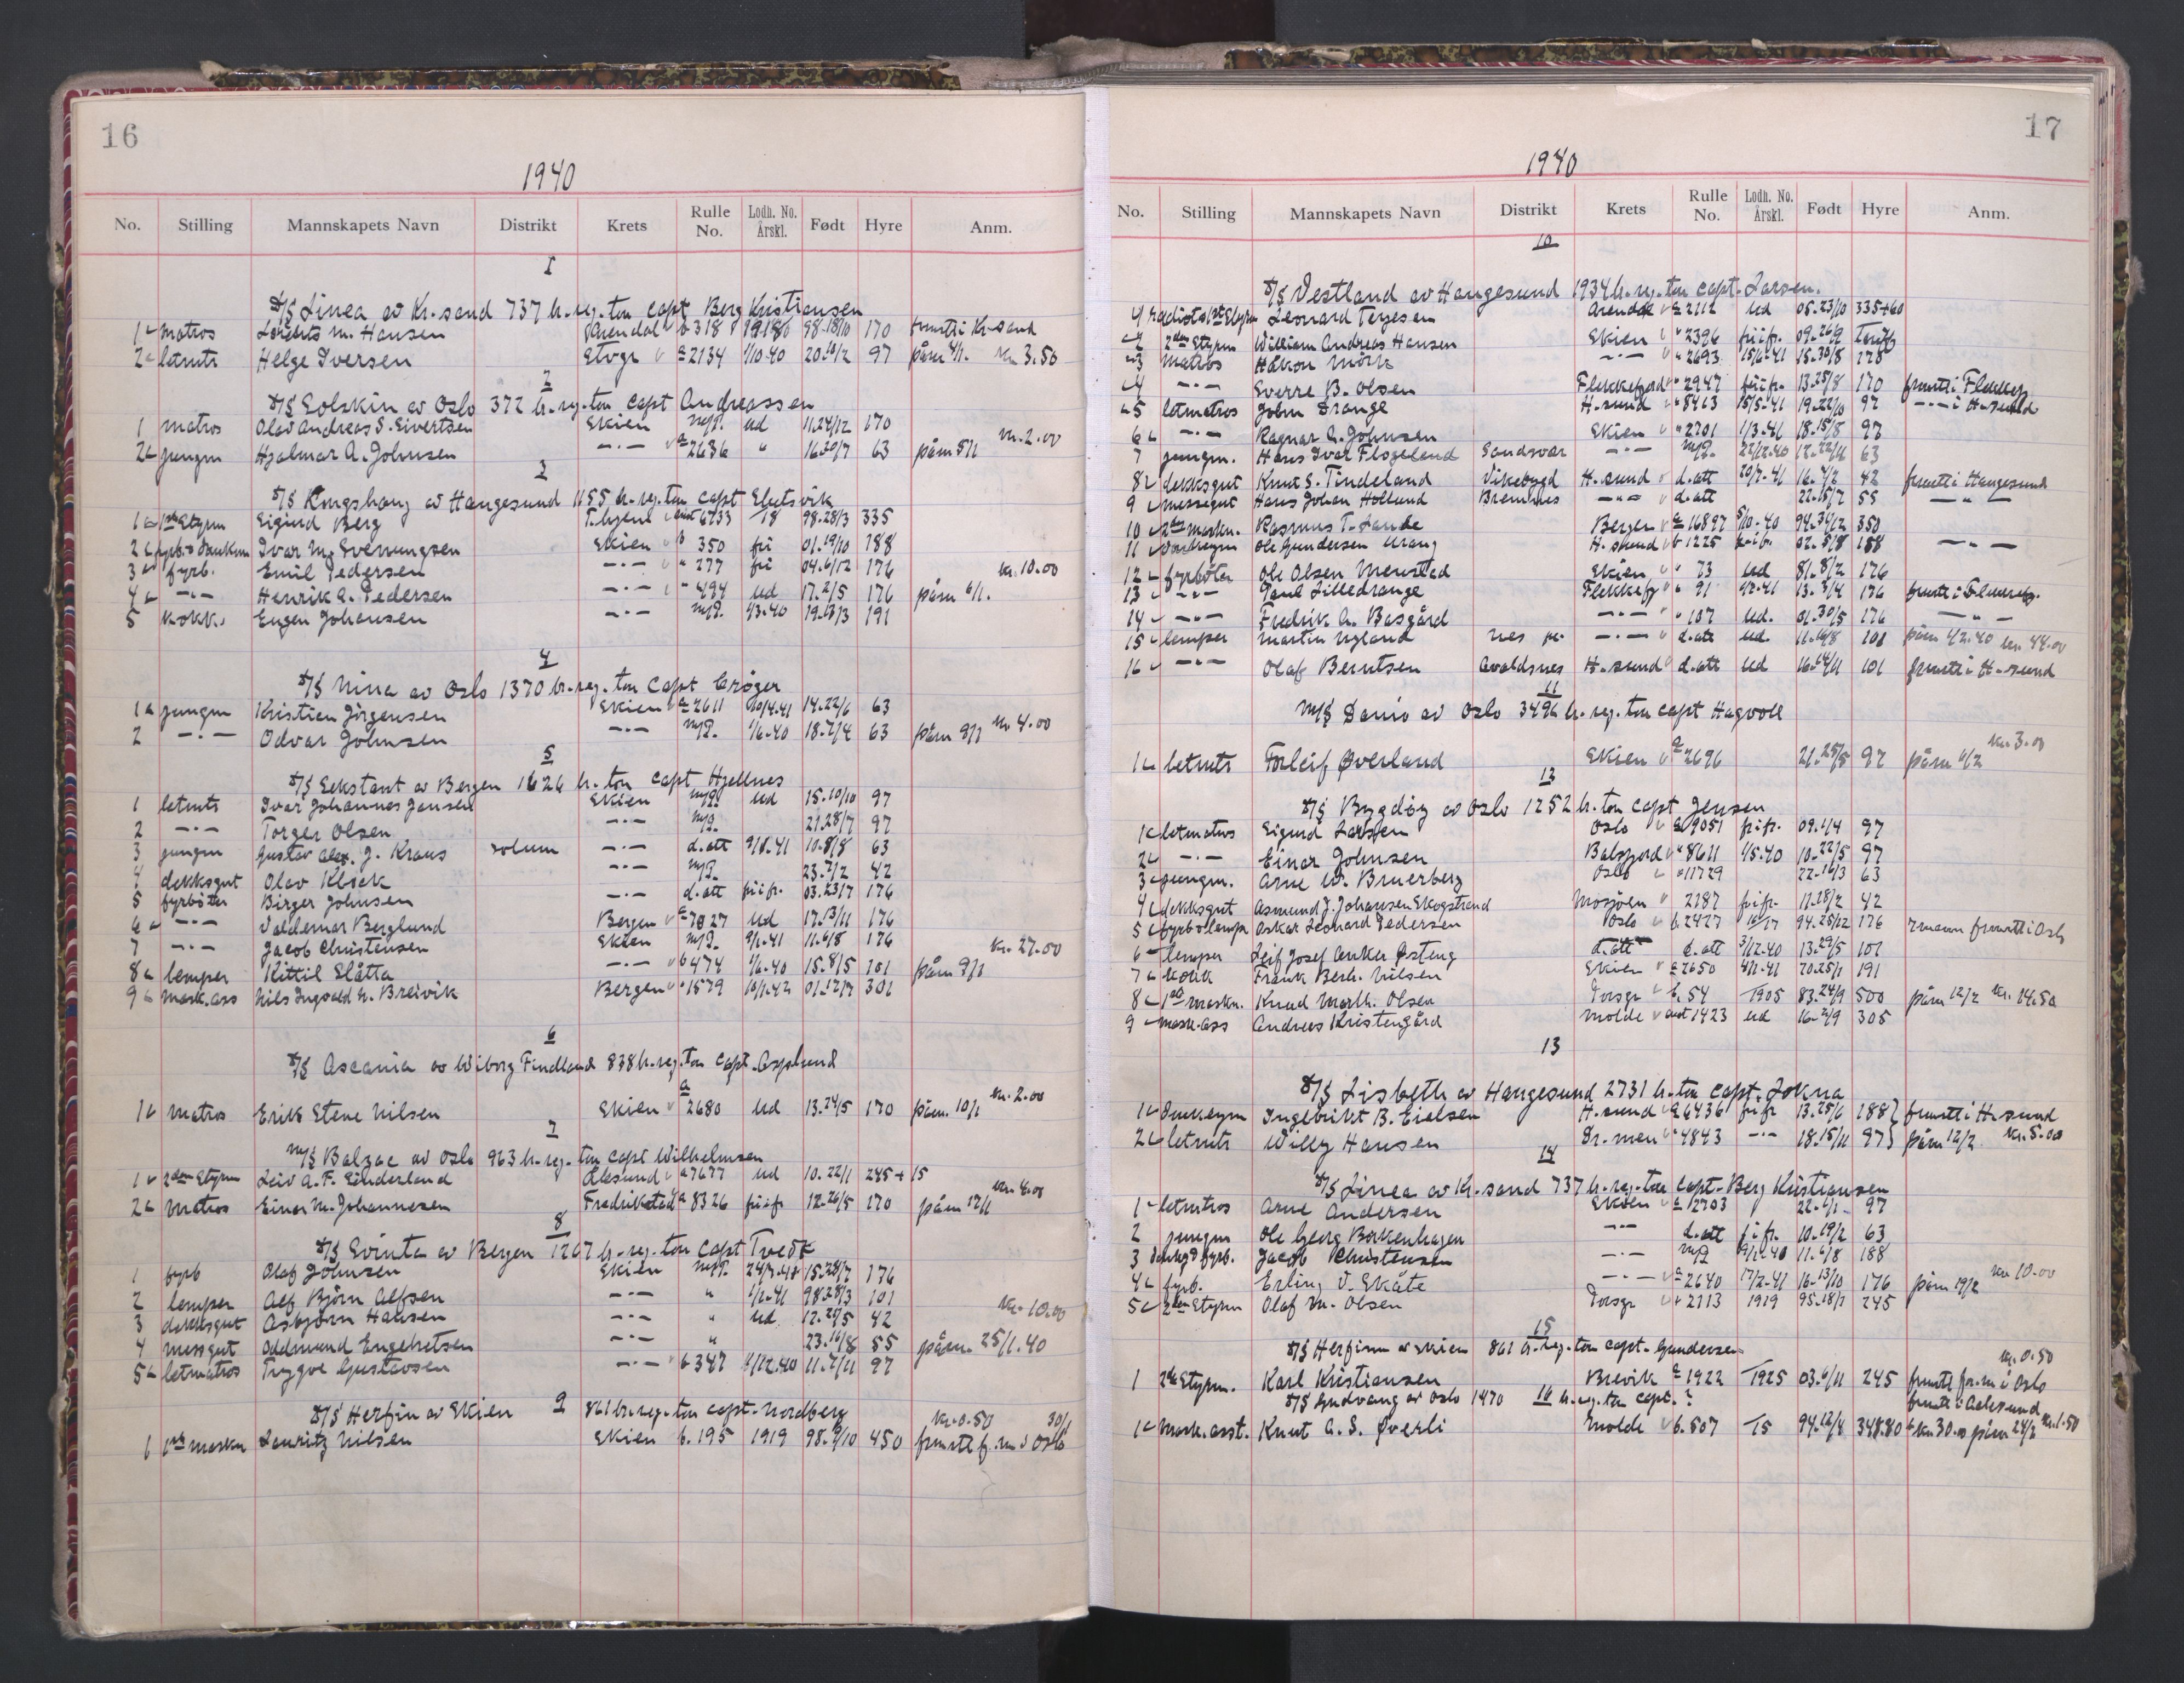 16
1940
No. Stilling Mannskapets Navn Distrikt Krets Rulle No. Lodh. No. Årskl. Født Hyre Anm.
1
D/S Linea av Kr.sand 737 br.reg.ton Capt Berg Kristiansen
1 matros M. Hansen Arendal b 318 98.18/10 170 i Kr.sand
2 letmtr Helge Iversen a 2134 1/10.40 20.10/2 97 påm 4/1. Kr 3.50
2
D/S Solskin av Oslo 372 br.reg.ton Capt Andreassen
1 matros Olav Andreas S. Sivertsen Skien ud 11.24/12 170
2 jungm Hjalmar A. Johnsen —·— a 2636 " 16.30/7 63 påm 5/1 Kr. 2.00
3
D/S Kongshaug av Haugesund 1155 br.reg.ton Capt
1 Styrm Sigurd Berg 6733 18 98.28/3 335
2 Ivar M. Evenungsen Skien b 350 fri 01.19/10 188
3 fyrb. Emil Pedersen —·— " 277 fri 04.6/12 176 Kr. 10.00
4 —·— Henrik A. Pedersen —·— " 494 ud 17.2/5 176 påm 6/1.
5 kokk Eugen Johansen —·— 1/3.40 191
4
D/S Nina av Oslo 1370 br.reg.ton Capt Crøger
1 jungm Kristian Jörgensen Skien a 2611 10/4.41 14.22/6 63
2 —·— Odvar Johnsen —·— 1/6.40 18.7/4 63 påm 8/1 Kr 4.00
5
D/S Sekstant av Bergen 1626 br.ton Capt Hjellnes
1 letmtr Ivar Johannes Jansen Skien ud 15.10/10 97
2 —·— Torger Olsen —·— 21.28/7 97
3 jungm Gustav Alex. J. Kraus solum —·— d.att 10.8/8 63
4 dekksgut Olav Klock —·— 23.7/2 42
5 fyrböter Birger Johnsen —·— d.att fri i fr. 03.23/7 176
6 —·— Valdemar Berglund Bergen a 7827 ud 17.13/11 176
7 —·— Jacob Christensen Skien 9/1.41 11.6/8 176
8 lemper Kittil Slåtta —·— b 474 1/6.40 15.8/5 101 påm 9/1 Kr. 27.00
9 mask.ass Nils Ingvald N. Breivik Bergen " 1579 10/1.42 01.12/7 301
6
D/S Ascania av Wiborg Findland 838 br.reg.ton Capt. Asplund
1 matros Erik Steve Nilsen Skien a 2680 ud 13.24/5 170 påm. 10/1 Kr. 2.00
7
M/S Balzac av Oslo 963 br.reg.ton Capt Wilhelmsen
1 2den Styrm Leiv A. F. Sinderland Ålesund a 7677 ud 10.22/1 245+15
2 matros Einar M. Johannesen Fredrikstad a 8326 fri i fr 12.26/5 170 påm 12/1 Kr. 4.00
8
D/S Svinta av Bergen 1267 br.reg.ton Capt Tvedt
1 fyrb Olaf Johnsen Skien 24/7.40 15.28/7 176
2 lemper Alf Björn Alfsen —·— " 1/2.41 98.28/3 101
3 dekksgut Asbjörn Hansen —·— " ud 12.29/5 42 Kr. 10.00
4 messgut Oddmund Engebretsen —·— " 23.16/8 55 påm. 25/1.40
5 letmatros Trygve Gustavsen —·— b 347 1/12.40 11.7/11 97
9
D/S Herfin av Skien 861 br.reg.ton Capt. Nordberg Kr. 0.50 30/1
1 maskn Lauritz Nilsen Skien b. 195 1919 98.9/10 450 f. m. i Oslo
17
1940
No. Stilling Mannskapets Navn Distrikt Krets Rulle No. Lodh. No. Årskl. Født Hyre Anm.
10
D/S Vestland av Haugesund 1934 br.reg.ton Capt. Larsen.
1 Leonard Terjesen Arendal a 2112 ud 05.23/10 335+60
2 2den Styrm William Andreas Hansen Skien " 2396 fri i fr. 09.26/9 Tariff
3 matros Håkon Mörk —·— " 2693 15/6.41 18.30/8 178
4 —·— Sverre B. Olsen Flekkefjord " 2947 fri i fr. 13.25/8 170 i Flekkefj
5 letmatros John Drange H.sund " 8463 15/5.41 19.22/10 97 —·— i H.sund
6 —·— Ragnar A. Johnsen Skien " 2701 1/3.41 18.15/8 97
7 jungm. Hans Ivar Flogeland Sandsvær —·— 22/12.40 63
8 dekksgut Knut S. Tindeland Vikebygd H.sund d.att 20/7.41 16.4/2 42 i Haugesund
9 messegut Hans Johan Hollund Bremnes —·— d.att 22.15/7 55 —·—
10 2den maskn. Rasmus T. Lande Bergen a 16897 5/10.40 94.31/12 350
11 Ole Gundersen Urang H.sund b 1225 fri i fr. 02.5/8 188 —·—
12 fyrböter Ole Olsen Menstad Skien " 73 ud 81.8/2 176
13 —·— Paul Lilledrange Flekkefj " 91 13.3/4 176 i Flekkefj.
14 —·— Fredrik A. Basgård —·— " 107 ud. 01.30/5 176 —·—
15 lemper Martin Nyland nes —·— d.att ud. 11.16/8 101 påm 1/2.40 Kr. 44.00
16 —·— Olaf Berntsen Avaldsnes H.sund d.att ud 16.14/11 101 i H.sund
11
M/S Danio av Oslo 3496 br.reg.ton Capt Hagvoll
1 letmtr Torleif Øverland Skien a 2696 21.25/5 97 påm 6/2 Kr. 3.00
12
D/S Bygdöy av Oslo 1252 br.ton Capt Jensen
1 letmatros Sigurd Larsen Oslo a 9051 fri fr. 09.1/4 97
2 —·— Einar Johnsen Balsfjord " 8611 1/5.40 10.22/5 97
3 jungm. Arne W. Bruerberg Oslo " 11729 22.16/3 63
4 dekksgut Asmund J. Johansen Skogstrand Mosjöen " 2187 fri fr. 17.28/2 42
5 fyrb o lemp Oskar Leonard Pedersen Oslo b 2427 94.25/12 176 i Oslo
6 lemper Leif Josef Anker Østeng d.att d.att 3/12.40 13.29/5 101
7 kokk Frank Berh. Nilsen Skien a 2650 4/1.41 20.25/1 191
8 1st maskn. Knud Marth. Olsen Porsgr b. 54 1905 83.24/9 500 påm 12/2 Kr. 14.50
9 mask. ass Andreas Kristengård Molde 1423 ud 16.2/9 305
13
D/S Lisbeth av Haugesund 2731 br.ton Capt. Lokna
1 Donkeym Ingebrikt B. Eielsen H.sund a 6436 fri fr 13.25/6 188 i H.sund
2 letmtr Willy Hansen Dr.men " 4843 —·— 18.15/11 97 påm 12/2 Kr. 5.00
14
D/S Linea av Kr.sand 737 br.reg.ton Capt. Berg Kristiansen
1 letmtros Arne Andersen Skien a 12703 22.4/1 97
2 jungm Ole Georg Borkenhagen —·— d.att fi fr. 10.19/2 63
3 fyrb. Jacob Christensen —·— 9/1.40 11.6/8 188
4 fyrb. Erling V. Skåte —·— a 2640 17/2.41 16.13/10 176 påm 19/2 Kr 10.00
5 2den Styrm Olaf M. Olsen Porsgr " 2113 1919 95.18/1 245
15
D/S Herfinn av Skien 861 br.reg.ton Capt. Gundersen Kr. 0.50
1 2de Styrm. Karl Kristiansen Brevik a 1922 1925 03.6/11 245 i Oslo
16
D/S Gudvang av Oslo 1470 br.reg.ton Capt. ? i Aalesund
1 Mask.asst. Knut A. S. Øverli Molde b. 507 15 94.12/4 348.80 Kr. 30.00 påm 24/2 Kr. 1.50